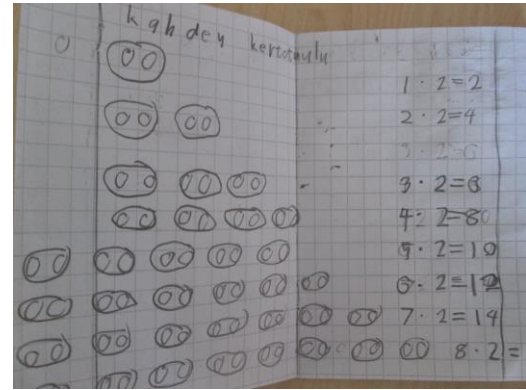 kahden kertotaulu
1 · 2 = 2
2 · 2 = 4
3 · 2 = 6
3 · 2 = 6
4 · 2 = 80
5 · 2 = 10
6 · 2 = 12
7 · 2 = 14
8 · 2 =